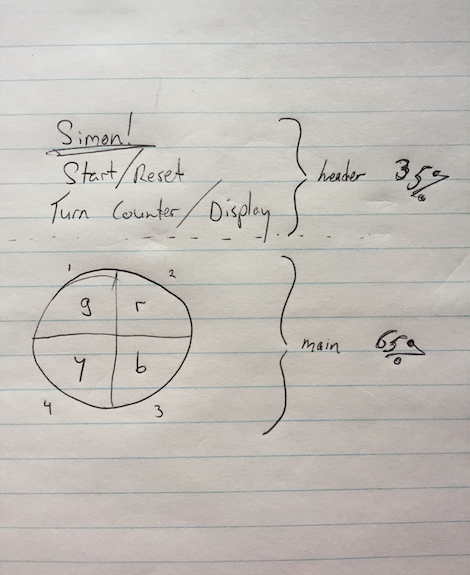 Simon!
Start/Reset
Turn Counter/Display
header 35%
1 2
g r
y b
4 3
main 65%